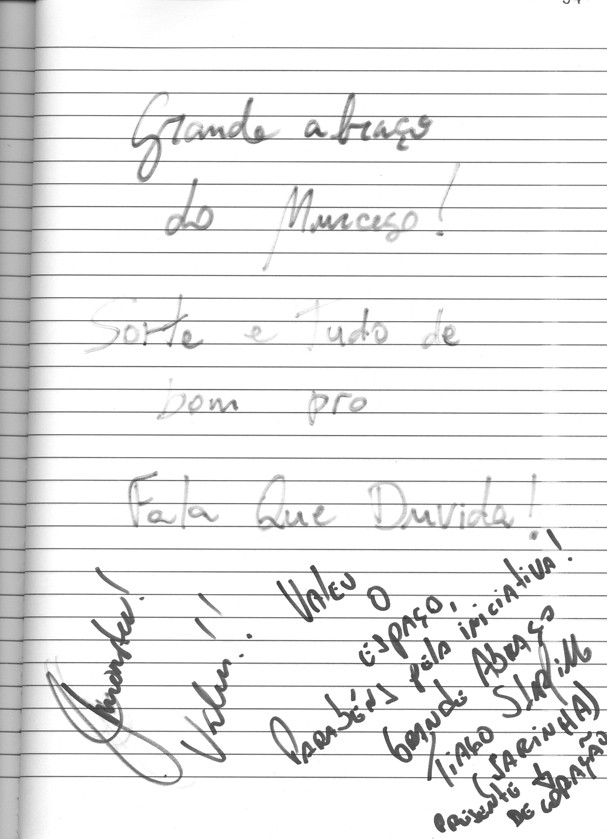 Grande abraço
do Murcego!
Sorte e Tudo de
bom pro
Fala Que Duvida!
Valeu!!
VALEU O
ESPAÇO,
PARABÉNS PELA INICIATIVA!
GRANDE ABRAÇO
TIAGO
(SARINHA)
PRESENTE
DE CORAÇÃO